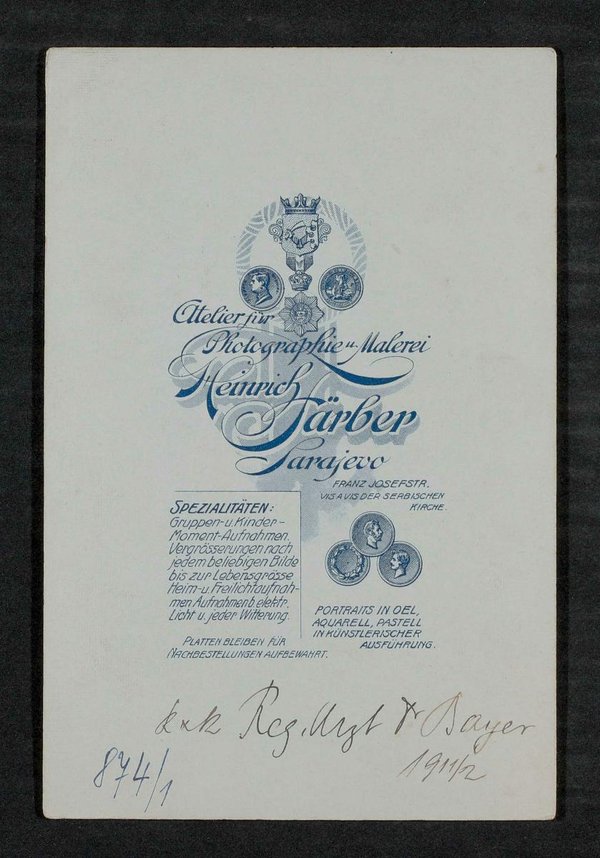 Atelier für
Photographie u. Malerei
Heinrich
Färber
Sarajevo
FRANZ JOSEFSTR.
VIS A VIS DER SERBISCHEN
KIRCHE.
SPEZIALITÄTEN:
Gruppen- u. Kinder-
Moment-Aufnahmen.
Vergrösserungen nach
jedem beliebigen Bilde
bis zur Lebensgrösse
Heim- u. Freilichtaufnah-
men Aufnahmen b. elektr.
Licht u. jeder Witterung.
PLATTEN BLEIBEN FÜR
NACHBESTELLUNGEN AUFBEWAHRT.
PORTRAITS IN OEL,
AQUARELL, PASTELL
IN KÜNSTLERISCHER
AUSFÜHRUNG.
k u k Reg. Arzt Dr Bayer
1911/2
874/1